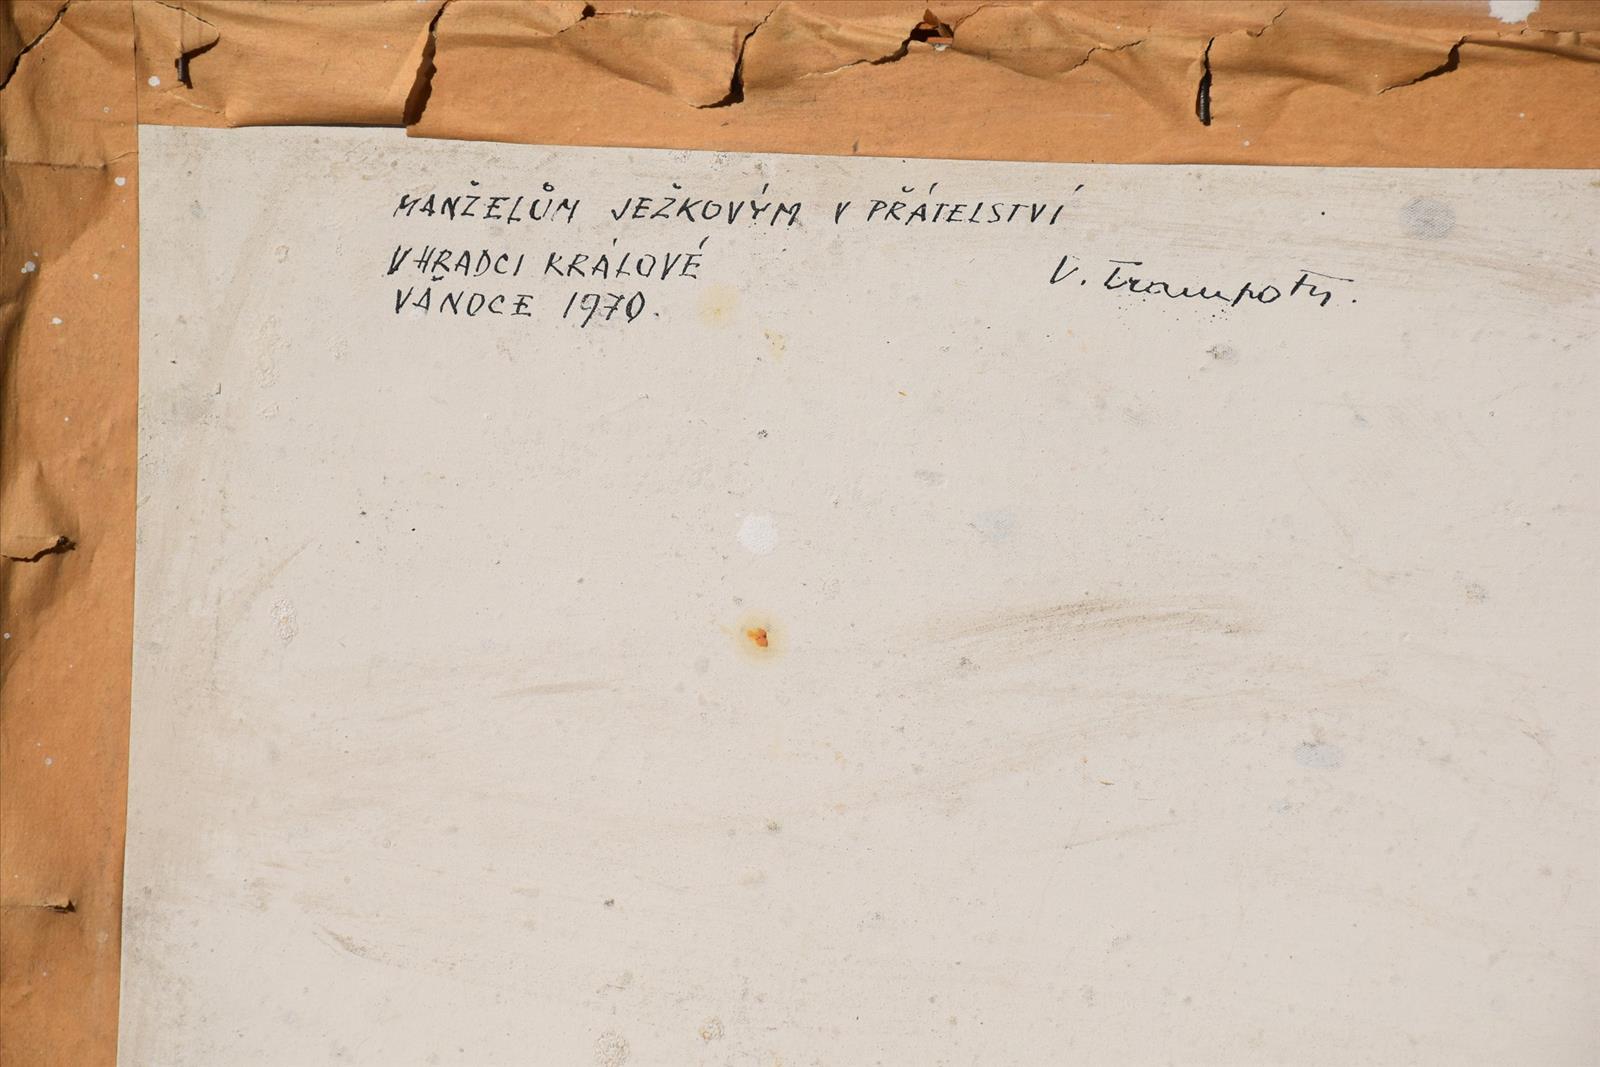 MANŽELŮM JEŽKOVÝM V PŘÁTELSTVÍ
V HRADCI KRÁLOVÉ
VÁNOCE 1970.
V. Trampota.